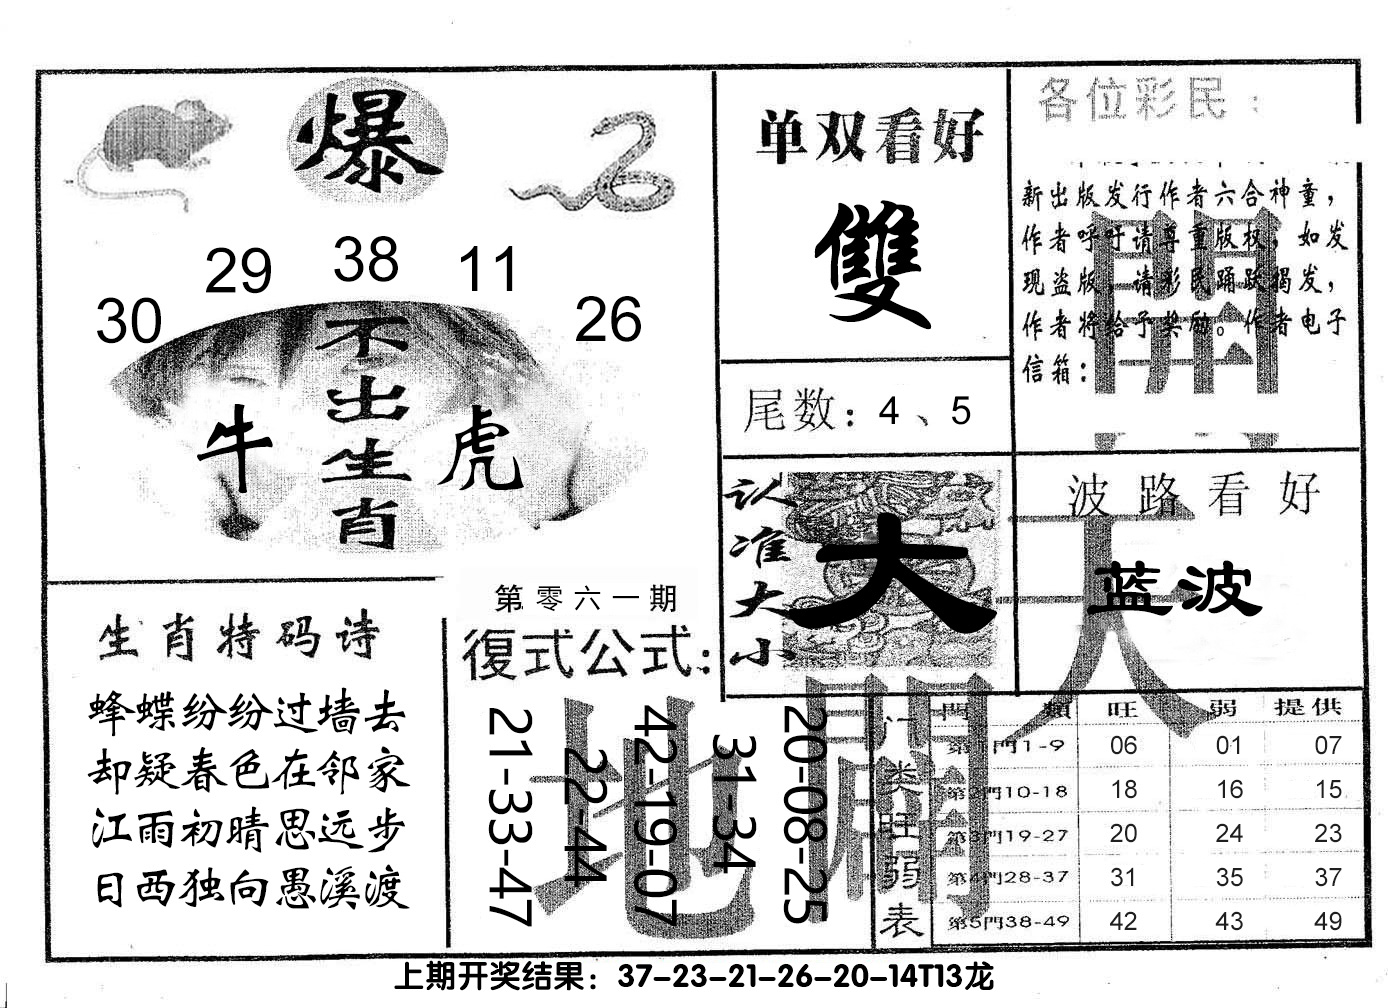 爆
29 38 11
30 26
不出生肖
牛 虎
单双看好
雙
尾数：4、5
各位彩民：
新出版发行作者六合神童，
作者呼吁请尊重版权，如发
现盗版，请彩民踊跃揭发，
作者将给予奖励。作者电子
信箱：
開
认准大小
大
波路看好
蓝波
天
生肖特码诗
蜂蝶纷纷过墙去
却疑春色在邻家
江雨初晴思远步
日西独向愚溪渡
第零六一期
復式公式：
21-33-47
22-44
42-19-07
31-34
20-08-25
地
開
门类旺弱表
門類 旺 弱 提供
第1門1-9 06 01 07
第2門10-18 18 16 15
第3門19-27 20 24 23
第4門28-37 31 35 37
第5門38-49 42 43 49
上期开奖结果：37-23-21-26-20-14T13龙